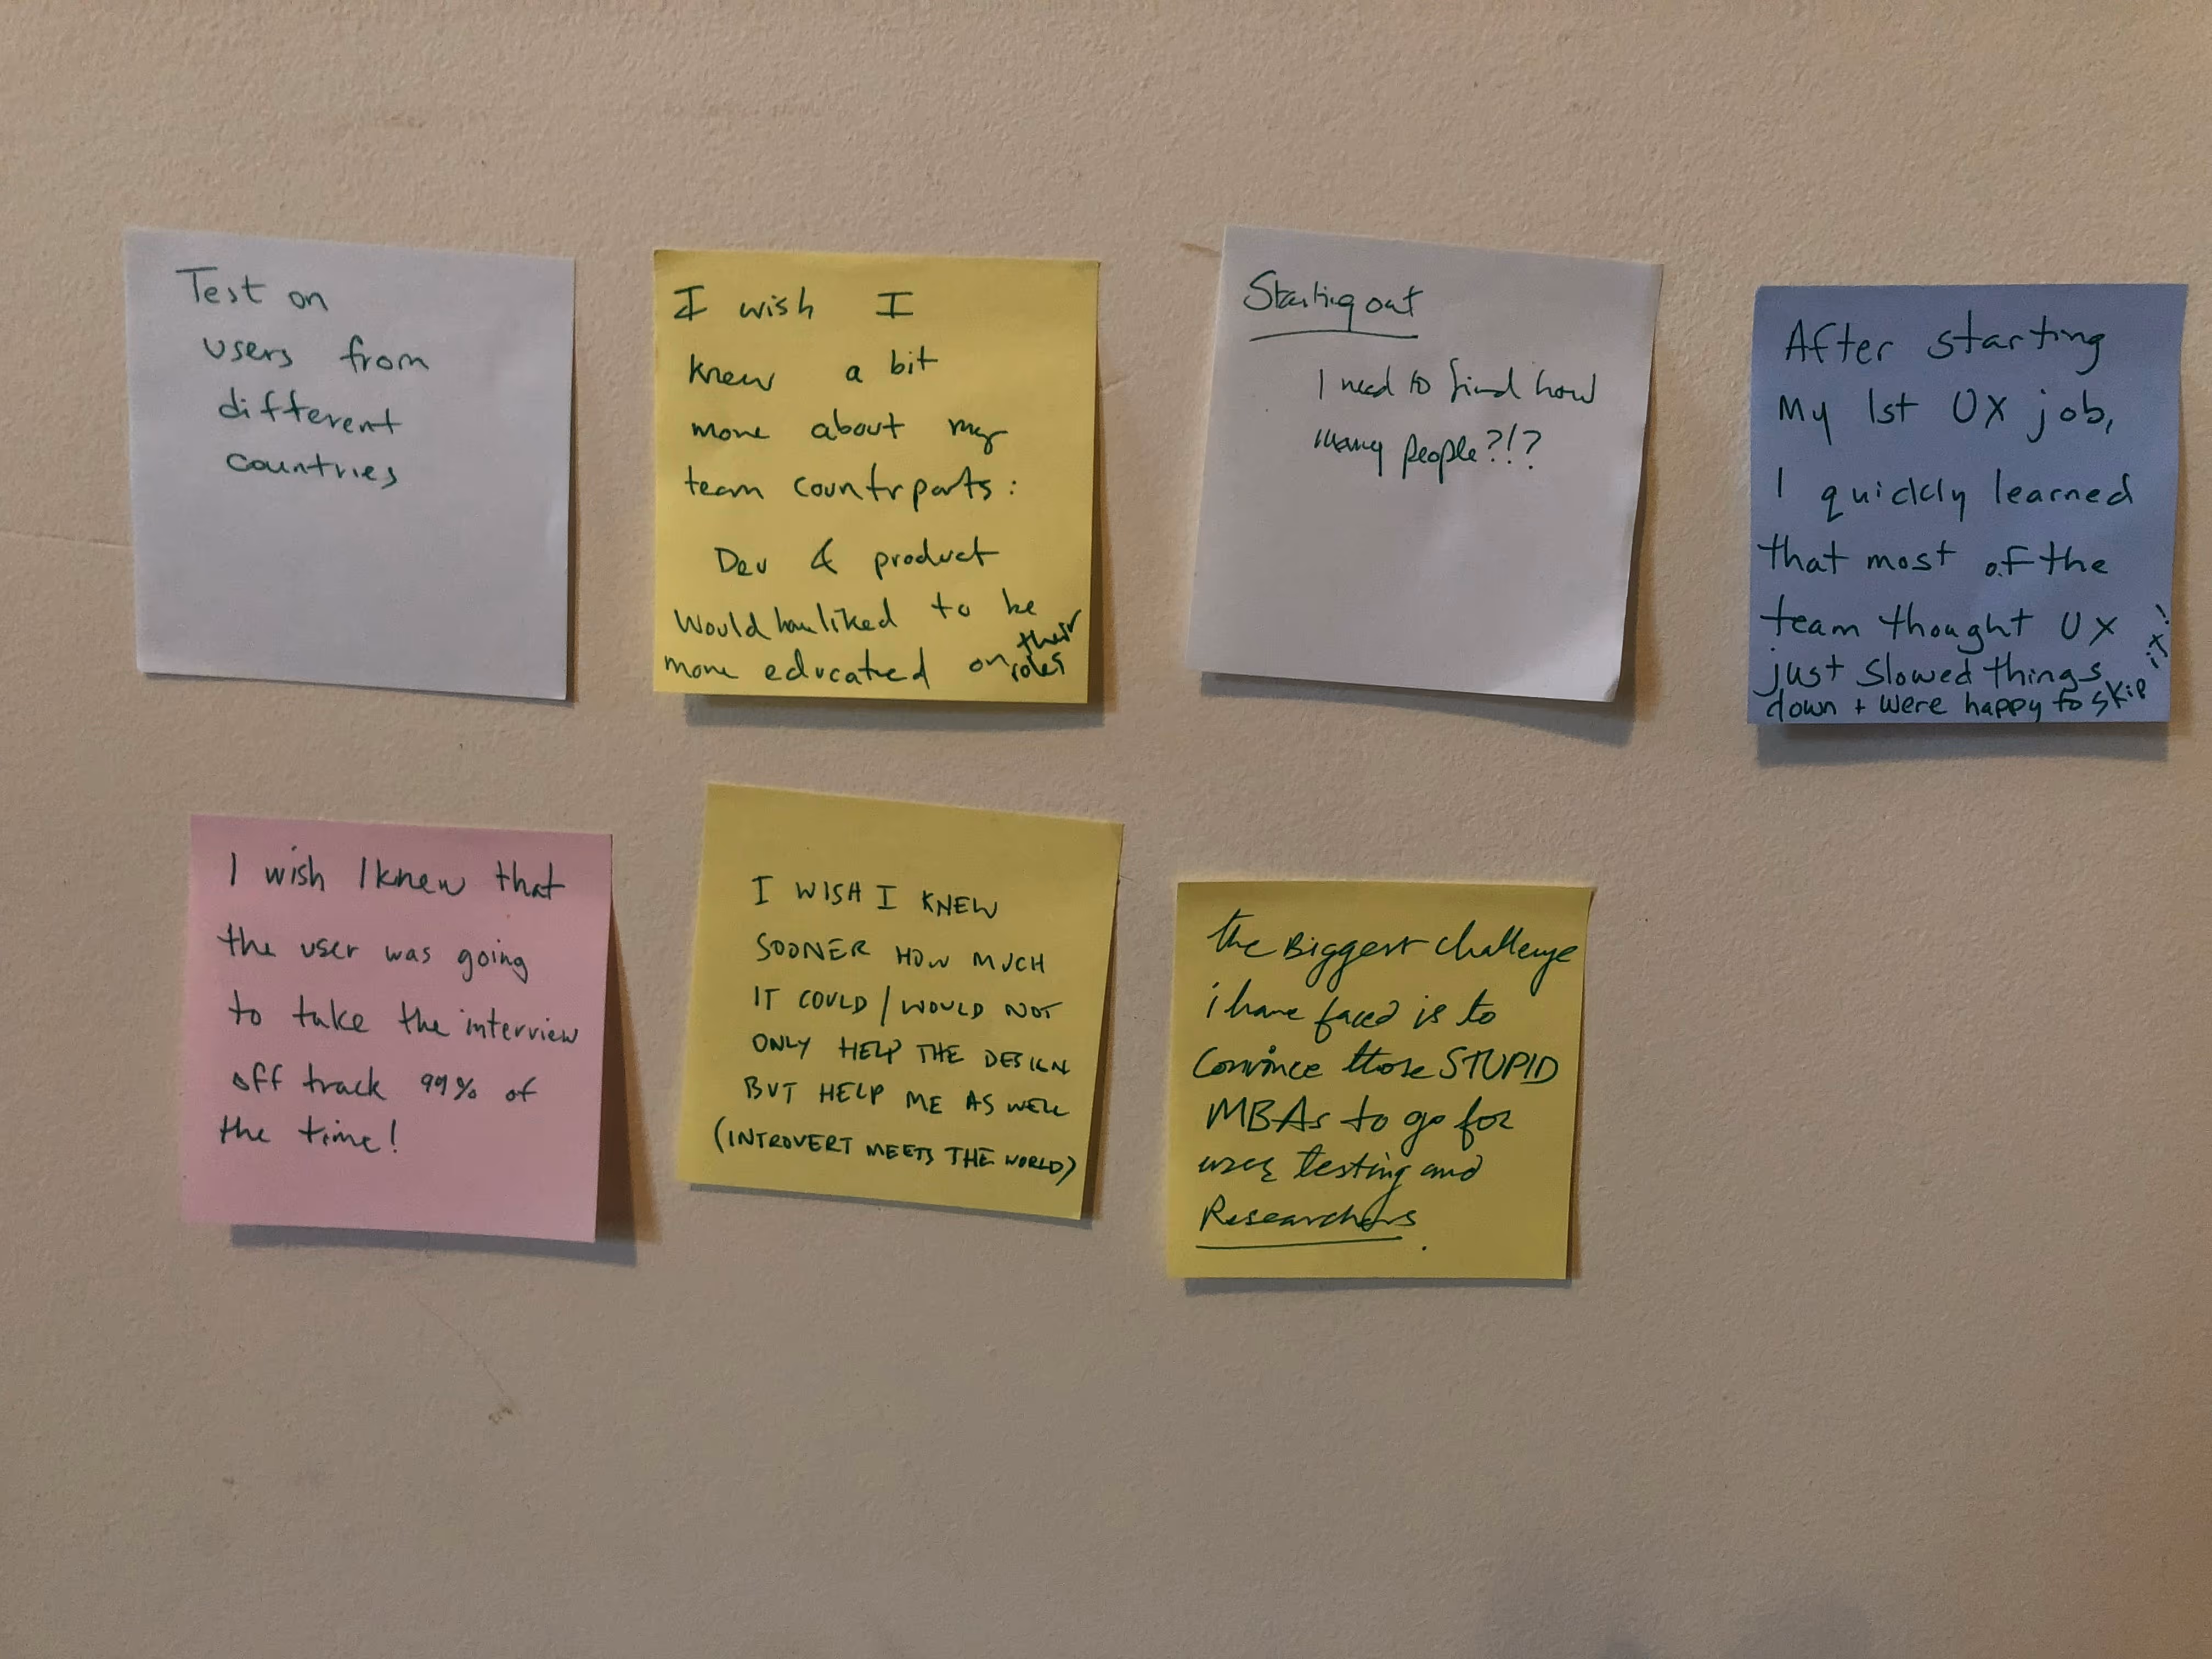 Test on
users from
different
countries
I wish I
knew a bit
more about my
team countrparts:
Dev & product
Would have liked to be
more educated on their
roles
Starting out
I need to find how
many people?!?
After starting
my 1st UX job,
I quickly learned
that most of the
team thought UX
just slowed things
down + were happy to skip it!
I wish I knew that
the user was going
to take the interview
off track 99% of
the time!
I WISH I KNEW
SOONER HOW MUCH
IT COULD / WOULD NOT
ONLY HELP THE DESIGN
BUT HELP ME AS WELL
(INTROVERT MEETS THE WORLD)
the Biggest challenge
i have faced is to
Convince those STUPID
MBAs to go for
user testing and
Researchers.